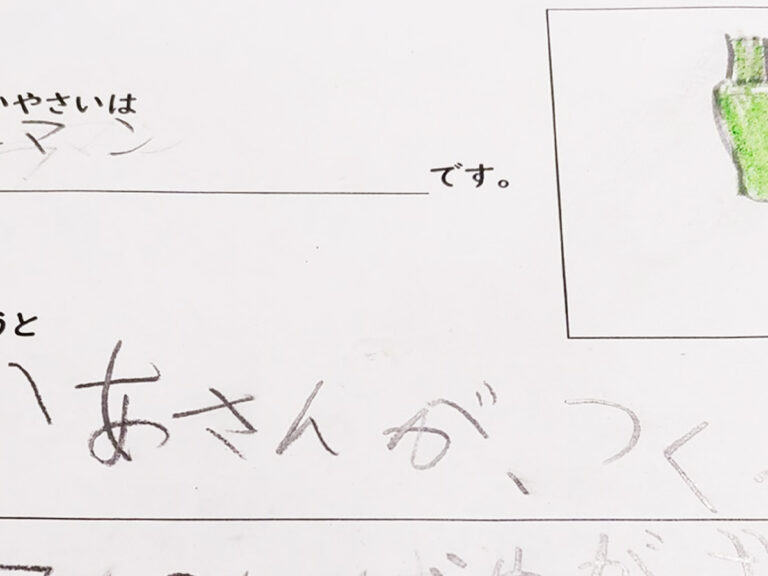 いやさいは
ーマン
です。
うと
かあさんが、つく